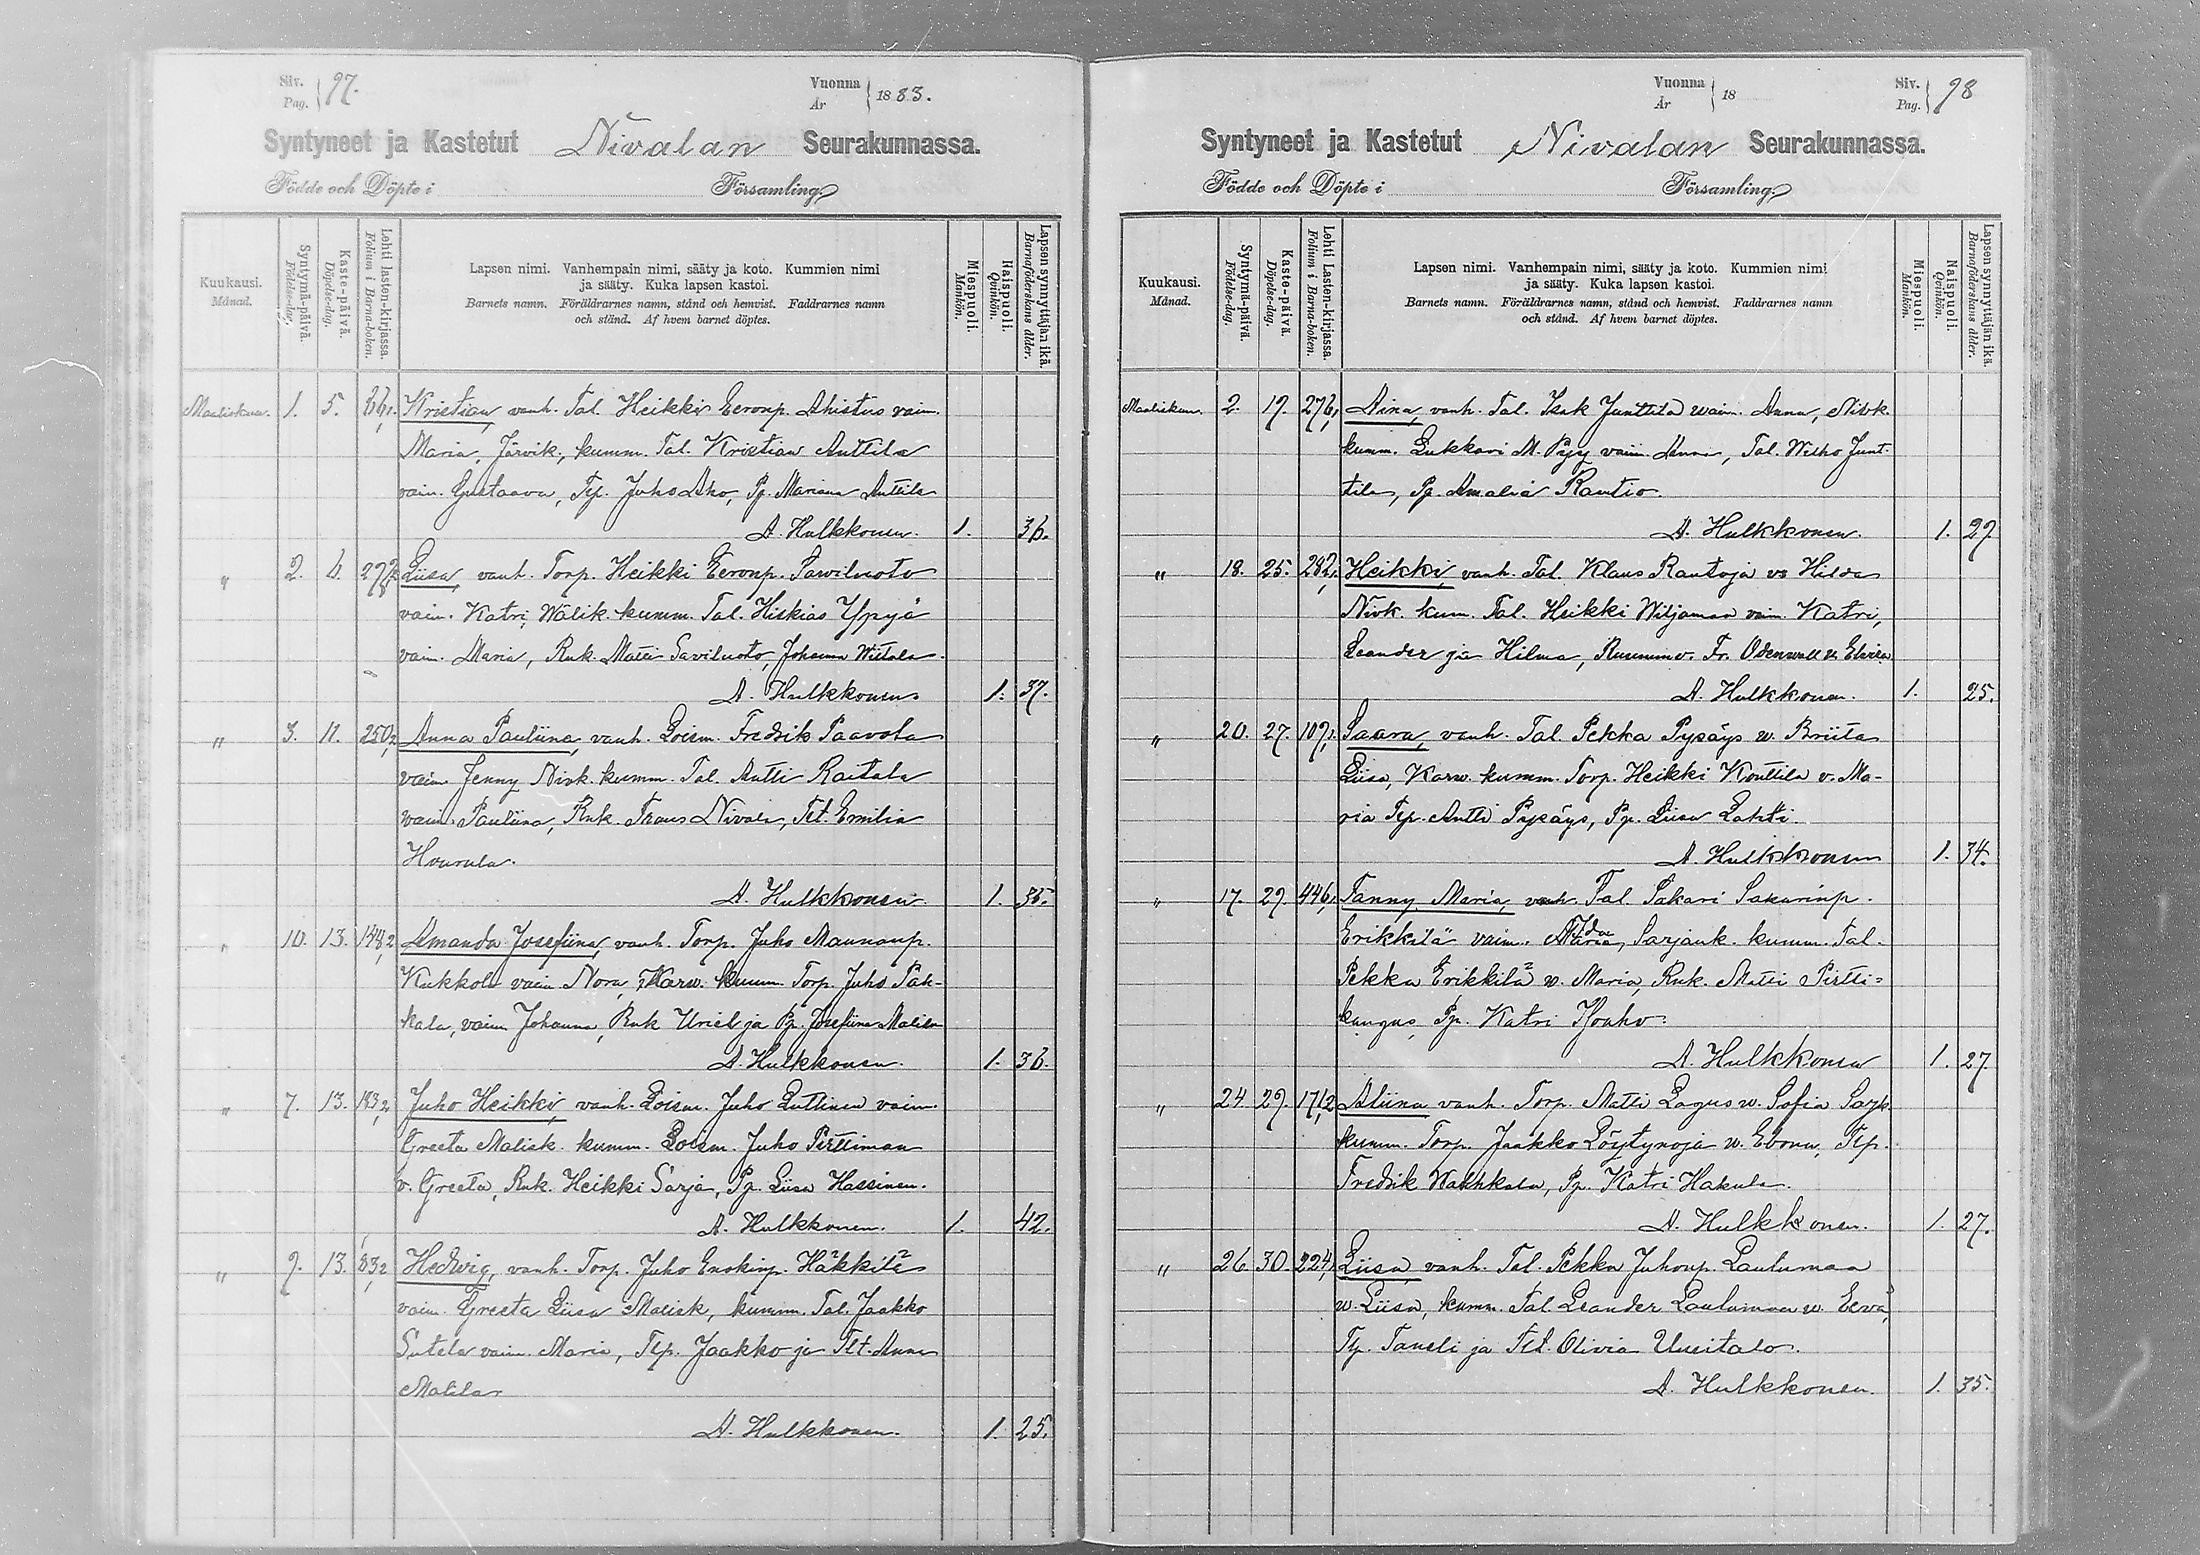 Siv.
Pag. 97.
Vuonna
År 1883.
Syntyneet ja Kastetut Nivalan Seurakunnassa.
Födde och Döpte i Församling.
Kuukausi.
Månad.
Syntymä-päivä.
Födelse-dag.
Kaste-päivä.
Döpelse-dag.
Lehti lasten-kirjassa.
Folium i Barna-boken.
Lapsen nimi. Vanhempain nimi, sääty ja koto. Kummien nimi
ja sääty. Kuka lapsen kastoi.
Barnets namn. Föräldrarnes namn, stånd och hemvist. Faddrarnes namn
och stånd. Af hvem barnet döptes.
Miespuoli.
Mankön.
Naispuoli.
Qvinkön.
Lapsen synnyttäjän ikä.
Barnaföderskans ålder.
Maaliskuu. 1. 5. Kristian, vanh. Tal. Heikki Eeronp. Ahistus vaim.
Maria, Järvik., kumm. Tal. Kristian Anttila
vaim. Gustaava, Tlp. Juho Aho, Pp. Mariana Anttila
A. Hulkkonen. 1. 36.
" 2. 6. Liisa, vanh. Torp. Heikki Eeronp. Saviluoto
vaim. Katri, Wälik. kumm. Tal. Hiskias Yppyä
vaim. Maria, Rnk. Matti Saviluoto, Johanna Wiitala
A. Hulkkonen. 1. 37.
" 3. 11. 250,2 Anna Pauliina, vanh. Loism. Fredrik Paavola
vaim. Jenny Nivk. kumm. Tal. Antti Raitala
vaim. Pauliina, Rnk. Frans Nivala, Tlt. Emilia
Hourula.
A. Hulkkonen 1. 35.
" 10. 13. 144,2 Amanda Josefiina, vanh. Torp. Juho Maunonp.
Kukkola vaim. Nora, Karw. kumm. Torp. Juho Päh-
kala, vaim. Johanna, Rnk Uriel ja Pp. Josefiina Malila
A. Hulkkonen. 1. 36.
" 7. 13. 193,2 Juho Heikki, vanh. Loism. Juho Luttinen vaim.
Greeta Malisk. kumm. Loism. Juho Perttiman
v. Greeta, Rnk. Heikki Sarja, Pp. Liisa Hassinen.
A. Hulkkonen. 1. 42.
" 9. 13. 83,2 Hedvig, vanh. Torp. Juho Enokinp. Häkkilä
vaim. Greeta Liisa Malisk, kumm. Tal. Jaakko
Sutela vaim. Maria, Tlp. Jaakko ja Tlt. Anna
Malila
A. Hulkkonen. 1. 25.
Vuonna
År 18
Siv.
Pag. 98
Syntyneet ja Kastetut Nivalan Seurakunnassa.
Födde och Döpte i Församling.
Kuukausi.
Månad.
Syntymä-päivä.
Födelse-dag.
Kaste-päivä.
Döpelse-dag.
Lehti Lasten-kirjassa.
Folium i Barna-boken.
Lapsen nimi. Vanhempain nimi, sääty ja koto. Kummien nimi
ja sääty. Kuka lapsen kastoi.
Barnets namn. Föräldrarnes namn, stånd och hemvist. Faddrarnes namn
och stånd. Af hvem barnet döptes.
Miespuoli.
Mankön.
Naispuoli.
Qvinkön.
Lapsen synnyttäjän ikä.
Barnaföderskans ålder.
Maaliskuu. 2. 19. 276,1 Aina, vanh. Tal. Isak Junttila waim. Anna, Nivk.
kumm. Lukkari M. Pyy vaim. Anni, Tal. Wilho Junt-
tila, Pp. Amalia Rautio.
A. Hulkkonen. 1. 27.
" 18. 25. 282,1 Heikki, vanh. Tal. Klaus Rantoja vo Hilda
Nivk. kum. Tal. Heikki Wiljamaa vaim. Katri,
Leander ja Hilma, Fr. Odenwall v. Elviira
A. Hulkkonen. 1. 25.
" 20. 27. 107,1 Saara, vanh. Tal. Pekka Pysäys w. Briita
Liisa, Karw. kumm. Torp. Heikki Konttila v. Ma-
ria Tlp. Antti Pysäys, Pp. Liisa Lahti.
A. Hulkkonen 1. 34.
" 17. 29. 446,1 Fanny Maria, vanh. Tal. Sakari Sakarinp.
Erikkilä vaim. Maria Ida, Sarjank. kumm. Tal.
Pekka Erikkilä w. Maria, Rnk. Matti Pirtti-
kangas, Pp. Katri
A. Hulkkonen 1. 27.
" 24 29. 171,2 Aliina vanh. Torp. Matti Lagus w. Sofia Sarj.
kumm. Torp. Jaakko Löytynoja w. Ebona, Tlp.
Fredrik Kahkala, Pp. Katri Hakula.
A. Hulkkonen. 1. 27.
" 26 30. 224,1 Liisa, vanh. Tal. Pekka Juhonp. Laulumaa
w. Liisa, kumm. Tal. Leander Laulumaa w. Eeva,
Tlp. Taneli ja Tlt. Olivia Uusitalo.
A. Hulkkonen. 1. 35.